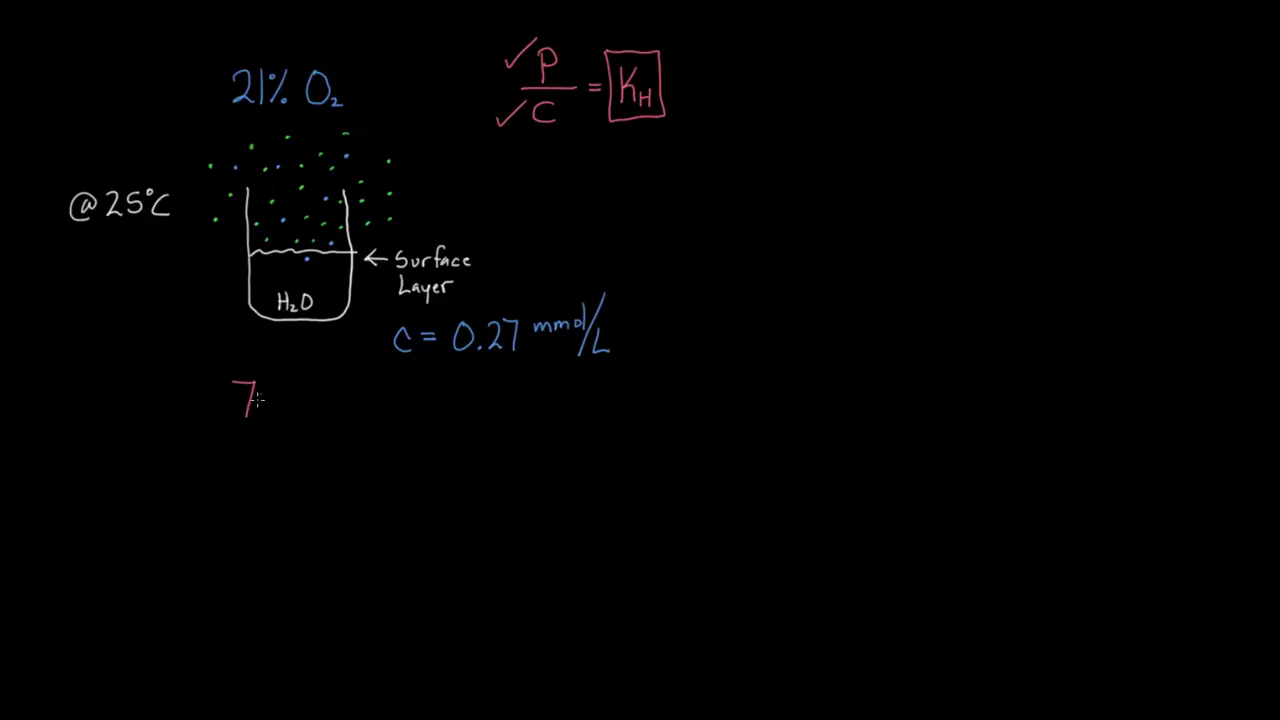 21% O₂
P/C = K_H
@25°C
← Surface
Layer
H₂O
C = 0.27 mmol/L
7